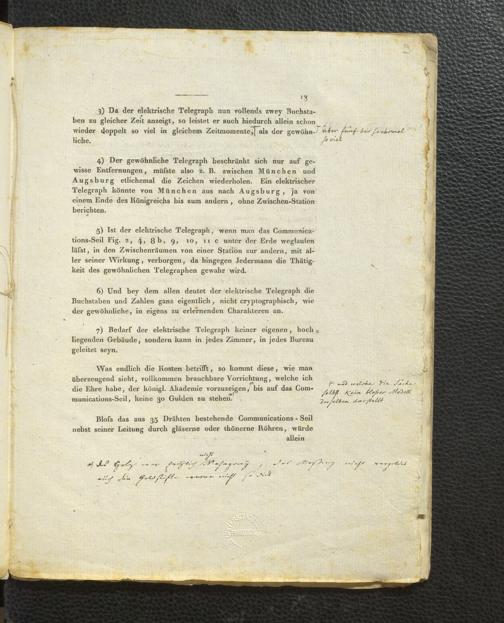 13
3) Da der elektrische Telegraph nun vollends zwey Buchsta-
ben zu gleicher Zeit anzeigt, so leistet er auch hiedurch allein schon
wieder doppelt so viel in gleichem Zeitmomente, als der gewöhn-
liche.
über fünf bis sechsmal
so viel
4) Der gewöhnliche Telegraph beschränkt sich nur auf ge-
wisse Entfernungen, müßte also z. B. zwischen München und
Augsburg etlichemal die Zeichen wiederholen. Ein elektrischer
Telegraph könnte von München aus nach Augsburg, ja von
einem Ende des Königreichs bis zum andern, ohne Zwischen-Station
berichten.
5) Ist der elektrische Telegraph, wenn man das Communica-
tions-Seil Fig. 2, 4, 8 b, 9, 10, 11 c unter der Erde weglaufen
läßt, in den Zwischenräumen von einer Station zur andern, mit al-
ler seiner Wirkung, verborgen, da hingegen Jedermann die Thätig-
keit des gewöhnlichen Telegraphen gewahr wird.
6) Und bey dem allen deutet der elektrische Telegraph die
Buchstaben und Zahlen ganz eigentlich, nicht cryptographisch, wie
der gewöhnliche, in eigens zu erlernenden Charakteren an.
7) Bedarf der elektrische Telegraph keiner eigenen, hoch
liegenden Gebäude, sondern kann in jedes Zimmer, in jedes Bureau
geleitet seyn.
Was endlich die Kosten betrifft, so kommt diese, wie man
überzeugend sieht, vollkommen brauchbare Vorrichtung, welche ich
die Ehre habe, der königl. Akademie vorzuzeigen, bis auf das Com-
munications-Seil, keine 30 Gulden zu stehen.
und welche die Sache
selbst kein bloßes Modell
desselben darstellt
Bloß das aus 35 Drähten bestehende Communications-Seil
nebst seiner Leitung durch gläserne oder thönerne Röhren, würde
allein